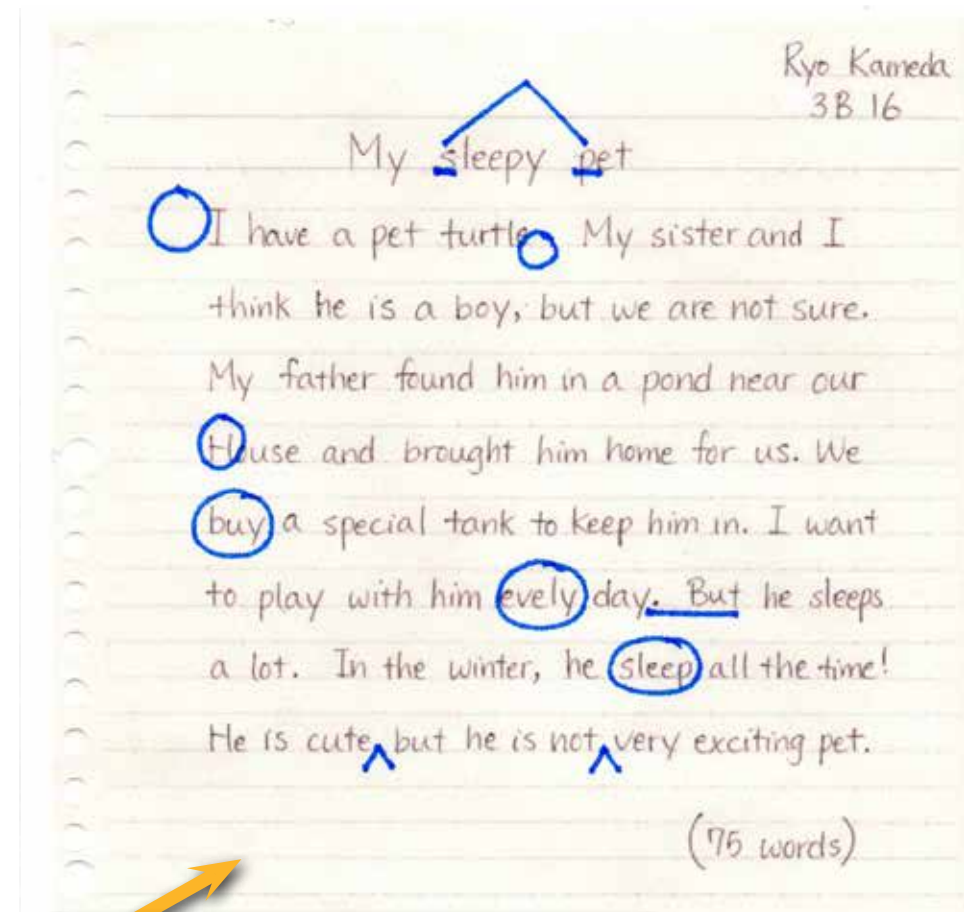 Ryo Kameda
3B 16
My sleepy pet
I have a pet turtle. My sister and I
think he is a boy, but we are not sure.
My father found him in a pond near our
House and brought him home for us. We
buy a special tank to keep him in. I want
to play with him evely day. But he sleeps
a lot. In the winter, he sleep all the time!
He is cute but he is not very exciting pet.
(75 words)